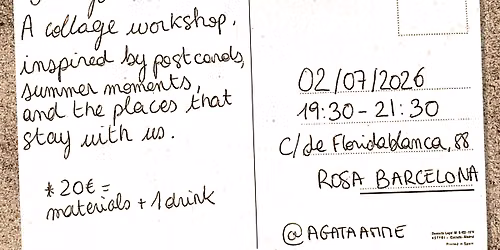 A collage workshop,
inspired by postcards,
summer moments,
and the places that
stay with us.
* 20€ =
materials + 1 drink
02/07/2026
19:30 - 21:30
C/de Floridablanca, 88
ROSA BARCELONA
@AGATAATTE
Printed in Spain